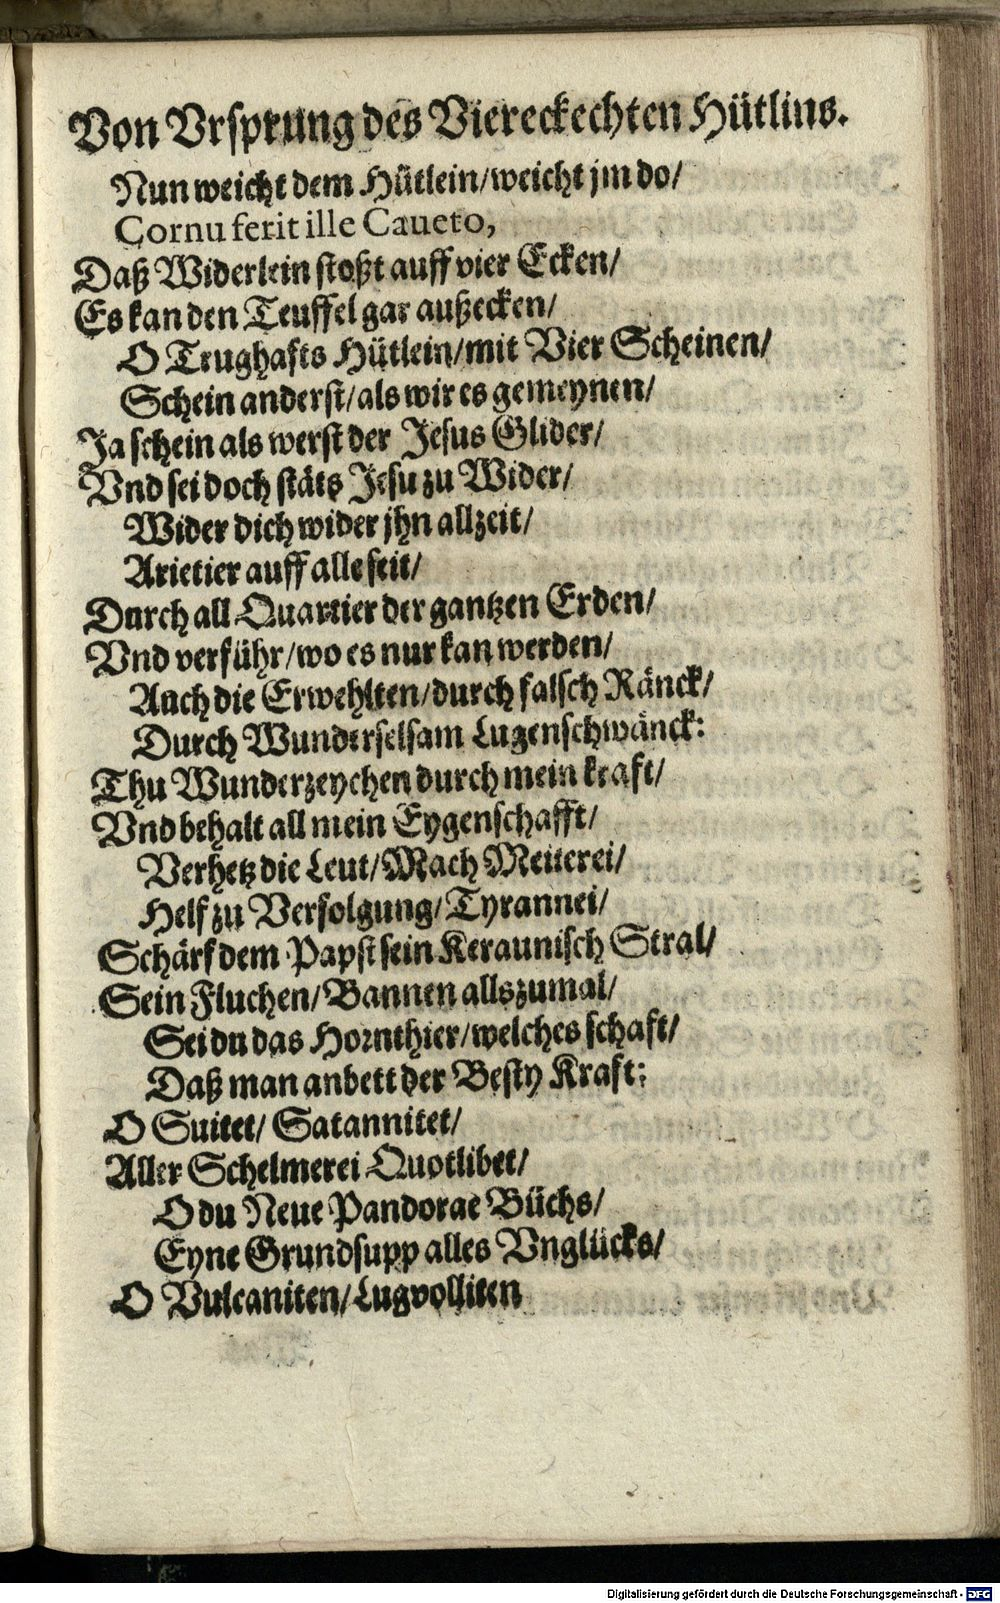 Von Vrsprung des Viereckechten Hütlins.
Nun weicht dem Hütlein/weicht jm do/
Cornu ferit ille Caueto,
Daß Widerlein stoßt auff vier Ecken/
Es kan den Teuffel gar außecken/
O Trughafts Hütlein/mit Vier Scheinen/
Schein anderst/als wir es gemeynen/
Ja schein als werst der Jesus Glider/
Vnd sei doch stäts Jesu zu Wider/
Wider dich wider jhn allzeit/
Arietier auff alle seit/
Durch all Quartier der gantzen Erden/
Vnd verführ/wo es nur kan werden/
Auch die Erwehlten/durch falsch Ränck/
Durch Wunderselsam Lugenschwänck:
Thu Wunderzeychen durch mein kraft/
Vnd behalt all mein Eygenschafft/
Verhetz die Leut/Mach Meiterei/
Helf zu Verfolgung/Tyrannei/
Schärf dem Papst sein Keraunisch Stral/
Sein Fluchen/Bannen allszumal/
Sei du das Hornthier/welches schaft/
Daß man anbett der Besty Kraft:
O Suitet/ Satannitet/
Aller Schelmerei Quotlibet/
O du Neue Pandorae Büchs/
Eyne Grundsupp alles Vnglücks/
O Vulcaniten/Lugvolliten
Digitalisierung gefördert durch die Deutsche Forschungsgemeinschaft - DFG